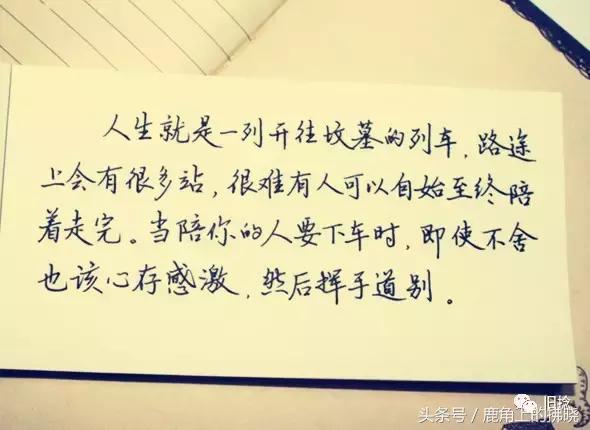 人生就是一列开往坟墓的列车,路途
上会有很多站,很难有人可以自始至终陪
着走完。当陪你的人要下车时,即使不舍
也该心存感激,然后挥手道别。
旧捻
头条号/鹿角上的拂晓